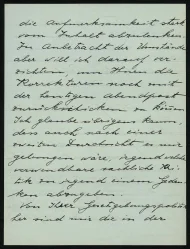 die Aufmerksamkeit stark
vom Inhalt abzulenken.
In Anbetracht der Umstände
aber will ich darauf ver-
zichten, um Ihnen die
Korrekturen noch mit
der heutigen Abendpost
zurückschicken zu können.
Ich glaube übrigens kaum,
dass auch nach einer
zweiten Durchsicht es mir
gelungen wäre, irgend welche
verwendbare sachliche Kri-
tik von irgend einem Gedan-
ken abzugeben.
Von Ihrer
ber sind mir die in der